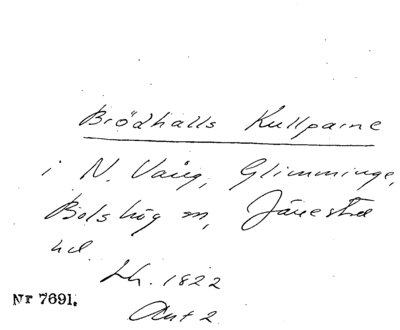 Brödhalls Kullparne
i N. Vång, Glimminge,
Bolshög m, Järrestad
hd.
Lh. 1822
Akt 2
Nr 7691.